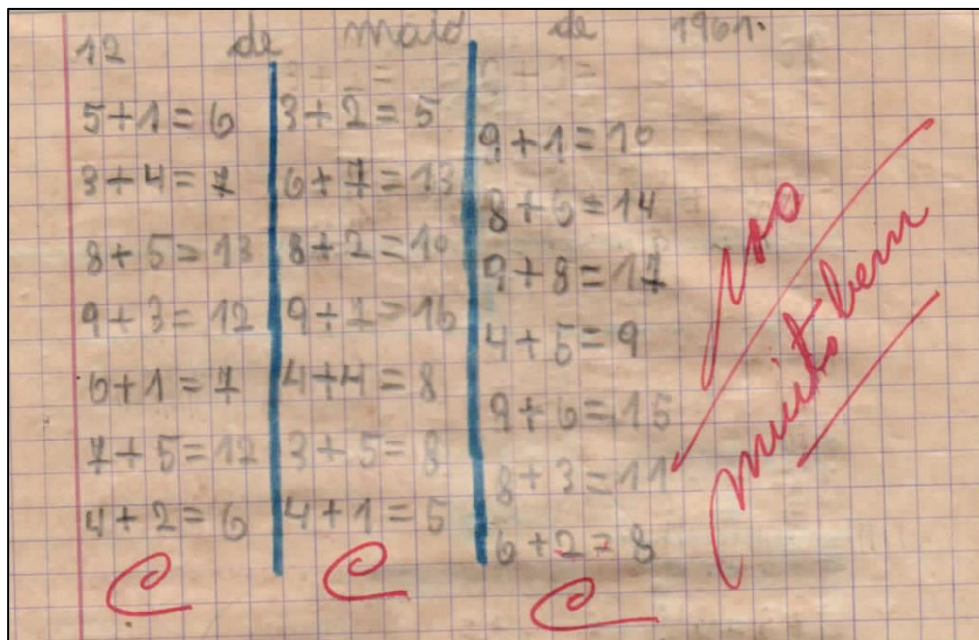 12 de maio de 1961.
5+1=6
3+4=7
8+5=13
9+3=12
6+1=7
7+5=12
4+2=6
C
3+2=5
6+7=13
8+2=10
9+7=16
4+4=8
3+5=8
4+1=5
C
9+1=10
8+6=14
9+8=17
4+5=9
9+6=15
8+3=11
6+2=8
C
100
muito bem